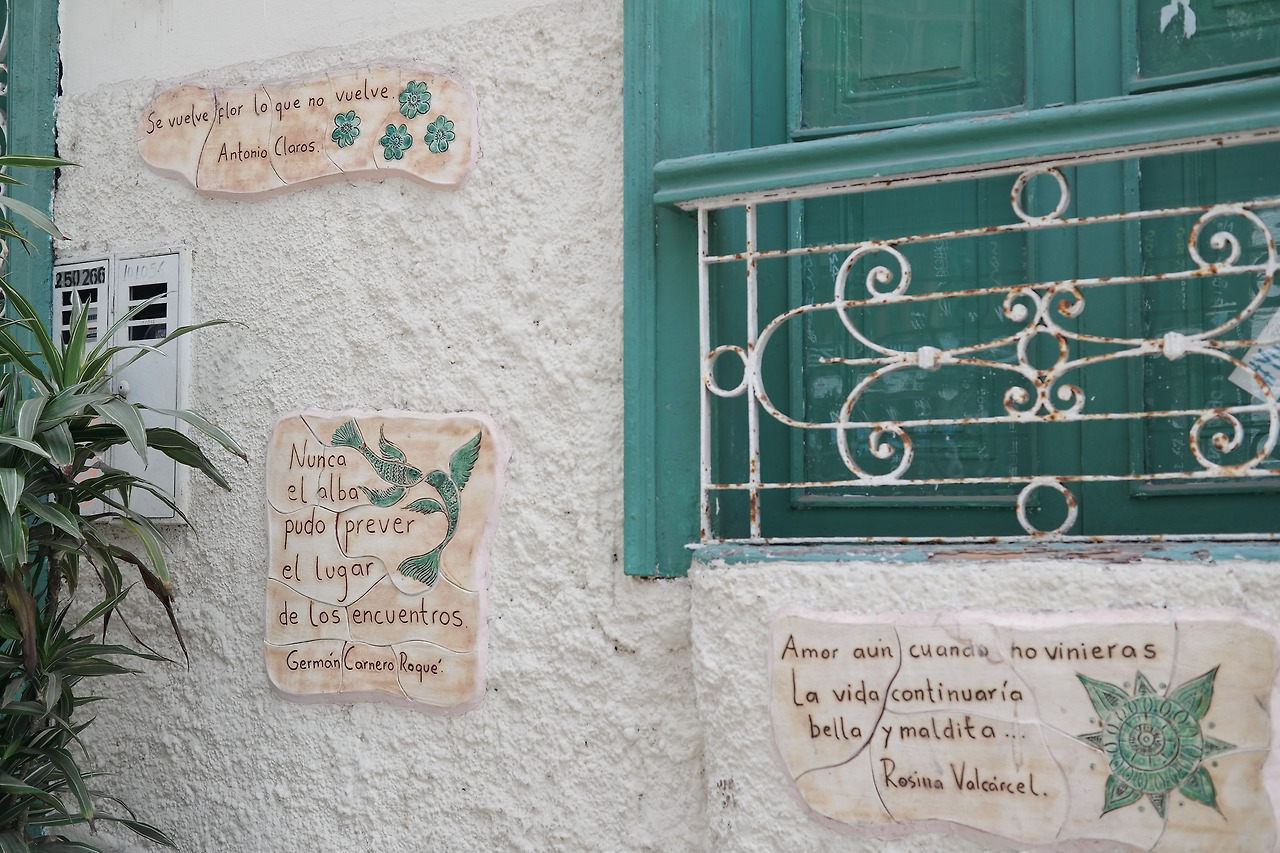 Se vuelve flor lo que no vuelve.
Antonio Claros.
250266
Nunca
el alba
pudo prever
el lugar
de los encuentros.
Germán Carnero Roqué.
Amor aún cuando no vinieras
La vida continuaría
bella y maldita...
Rosina Valcárcel.